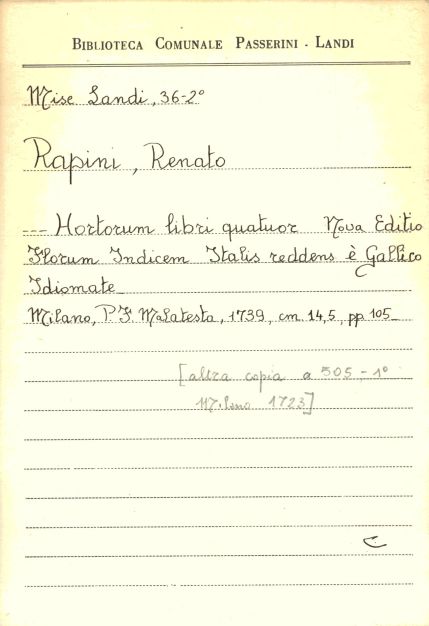 BIBLIOTECA COMUNALE PASSERINI - LANDI
Misc Landi, 36-2º
Rapini, Renato
--- Hortorum libri quatuor Nova Editio
Florum Indicem Italis reddens è Gallico
Idiomate_
Milano, P. F. Malatesta, 1739, cm 14,5, pp 105_
[altra copia a 505-1º
Milano 1723]